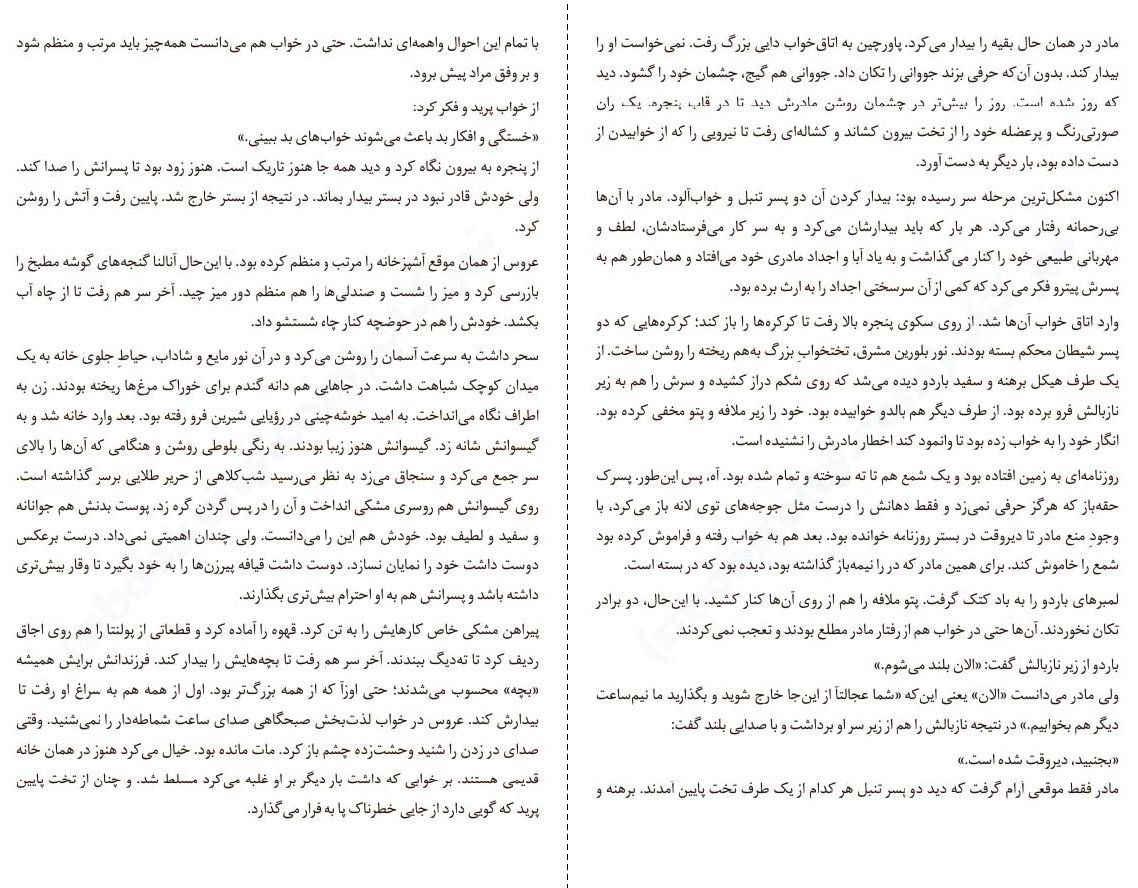 با تمام این احوال واهمه‌ای نداشت. حتی در خواب هم می‌دانست همه‌چیز باید مرتب و منظم شود
و بر وفق مراد پیش برود.
از خواب پرید و فکر کرد:
«خستگی و افکار بد باعث می‌شوند خواب‌های بد ببینی.»
از پنجره به بیرون نگاه کرد و دید همه جا هنوز تاریک است. هنوز زود بود تا پسرانش را صدا کند.
ولی خودش قادر نبود در بستر بیدار بماند. در نتیجه از بستر خارج شد. پایین رفت و آتش را روشن
کرد.
عروس از همان موقع آشپزخانه را مرتب و منظم کرده بود. با این‌حال آنالنا گنجه‌های گوشه مطبخ را
بازرسی کرد و میز را شست و صندلی‌ها را هم منظم دور میز چید. آخر سر هم رفت تا از چاه آب
بکشد. خودش را هم در حوضچه کنار چاه شستشو داد.
سحر داشت به سرعت آسمان را روشن می‌کرد و در آن نور مایع و شاداب، حیاطِ جلوی خانه به یک
میدان کوچک شباهت داشت. در جاهایی هم دانه گندم برای خوراک مرغ‌ها ریخته بودند. زن به
اطراف نگاه می‌انداخت. به امید خوشه‌چینی در رؤیایی شیرین فرو رفته بود. بعد وارد خانه شد و به
گیسوانش شانه زد. گیسوانش هنوز زیبا بودند. به رنگی بلوطی روشن و هنگامی که آن‌ها را بالای
سر جمع می‌کرد و سنجاق می‌زد به نظر می‌رسید شب‌کلاهی از حریر طلایی برسر گذاشته است.
روی گیسوانش هم روسری مشکی انداخت و آن را در پس گردن گره زد. پوست بدنش هم جوانانه
و سفید و لطیف بود. خودش هم این را می‌دانست. ولی چندان اهمیتی نمی‌داد. درست برعکس
دوست داشت خود را نمایان نسازد. دوست داشت قیافه پیرزن‌ها را به خود بگیرد تا وقار بیش‌تری
داشته باشد و پسرانش هم به او احترام بیش‌تری بگذارند.
پیراهن مشکی خاص کارهایش را به تن کرد. قهوه را آماده کرد و قطعاتی از پولنتا را هم روی اجاق
ردیف کرد تا ته‌دیگ ببندند. آخر سر هم رفت تا بچه‌هایش را بیدار کند. فرزندانش برایش همیشه
«بچه» محسوب می‌شدند؛ حتی اوزآ که از همه بزرگ‌تر بود. اول از همه هم به سراغ او رفت تا
بیدارش کند. عروس در خواب لذت‌بخش صبحگاهی صدای ساعت شماطه‌دار را نمی‌شنید. وقتی
صدای در زدن را شنید وحشت‌زده چشم باز کرد. مات مانده بود. خیال می‌کرد هنوز در همان خانه
قدیمی هستند. بر خوابی که داشت بار دیگر بر او غلبه می‌کرد مسلط شد. و چنان از تخت پایین
پرید که گویی دارد از جایی خطرناک پا به فرار می‌گذارد.
مادر در همان حال بقیه را بیدار می‌کرد. پاورچین به اتاق‌خواب دایی بزرگ رفت. نمی‌خواست او را
بیدار کند. بدون آن‌که حرفی بزند جووانی را تکان داد. جووانی هم گیج، چشمان خود را گشود. دید
که روز شده است. روز را بیش‌تر در چشمان روشن مادرش دید تا در قاب پنجره. یک ران
صورتی‌رنگ و پرعضله خود را از تخت بیرون کشاند و کشاله‌ای رفت تا نیرویی را که از خوابیدن از
دست داده بود، بار دیگر به دست آورد.
اکنون مشکل‌ترین مرحله سر رسیده بود: بیدار کردن آن دو پسر تنبل و خواب‌آلود. مادر با آن‌ها
بی‌رحمانه رفتار می‌کرد. هر بار که باید بیدارشان می‌کرد و به سر کار می‌فرستادشان، لطف و
مهربانی طبیعی خود را کنار می‌گذاشت و به یاد آبا و اجداد مادری خود می‌افتاد و همان‌طور هم به
پسرش پیترو فکر می‌کرد که کمی از آن سرسختی اجداد را به ارث برده بود.
وارد اتاق خواب آن‌ها شد. از روی سکوی پنجره بالا رفت تا کرکره‌ها را باز کند؛ کرکره‌هایی که دو
پسر شیطان محکم بسته بودند. نور بلورین مشرق، تختخوابِ بزرگ به‌هم ریخته را روشن ساخت. از
یک طرف هیکل برهنه و سفید باردو دیده می‌شد که روی شکم دراز کشیده و سرش را هم به زیر
نازبالش فرو برده بود. از طرف دیگر هم بالدو خوابیده بود. خود را زیر ملافه و پتو مخفی کرده بود.
انگار خود را به خواب زده بود تا وانمود کند اخطار مادرش را نشنیده است.
روزنامه‌ای به زمین افتاده بود و یک شمع هم تا ته سوخته و تمام شده بود. آه، پس این‌طور. پسرک
حقه‌باز که هرگز حرفی نمی‌زد و فقط دهانش را درست مثل جوجه‌های توی لانه باز می‌کرد، با
وجودِ منع مادر تا دیروقت در بستر روزنامه خوانده بود. بعد هم به خواب رفته و فراموش کرده بود
شمع را خاموش کند. برای همین مادر که در را نیمه‌باز گذاشته بود، دیده بود که در بسته است.
لمبرهای باردو را به باد کتک گرفت. پتو ملافه را هم از روی آن‌ها کنار کشید. با این‌حال، دو برادر
تکان نخوردند. آن‌ها حتی در خواب هم از رفتار مادر مطلع بودند و تعجب نمی‌کردند.
باردو از زیر نازبالش گفت: «الان بلند می‌شوم.»
ولی مادر می‌دانست «الان» یعنی این‌که «شما عجالتاً از این‌جا خارج شوید و بگذارید ما نیم‌ساعت
دیگر هم بخوابیم.» در نتیجه نازبالش را هم از زیر سر او برداشت و با صدایی بلند گفت:
«بجنبید، دیروقت شده است.»
مادر فقط موقعی آرام گرفت که دید دو پسر تنبل هر کدام از یک طرف تخت پایین آمدند. برهنه و